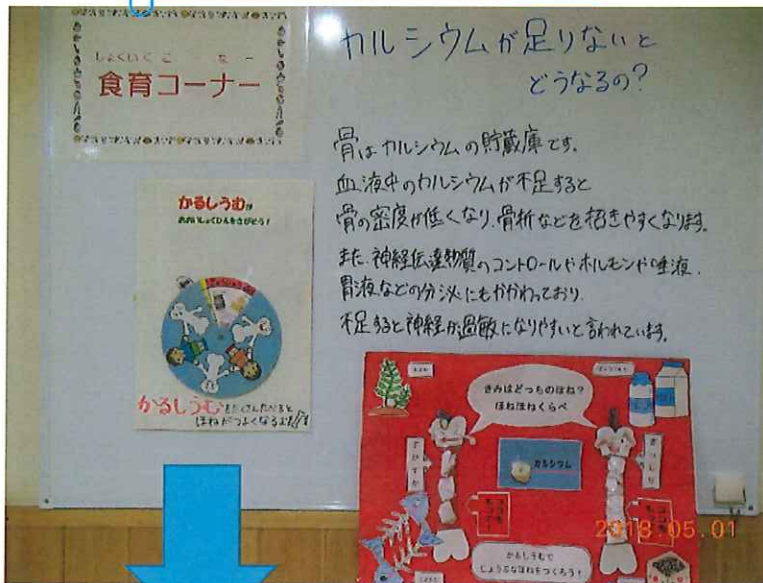 しょくいくこーなー
食育コーナー
カルシウムが足りないと
どうなるの?
骨はカルシウムの貯蔵庫です。
血液中のカルシウムが不足すると
骨の密度が低くなり、骨折などを招きやすくなります。
また、神経伝達物質のコントロールやホルモンや唾液、
胃液などの分泌にもかかわっており、
不足すると神経が過敏になりやすいと言われています。
かるしうむが
おおいしょくひんをさがそう!
かるしうむをたくさんたべると
ほねがつよくなるよ!
きみはどっちのほね?
ほねほねくらべ
カルシウム
かるしうむで
じょうぶなほねをつくろう!
2018.05.01